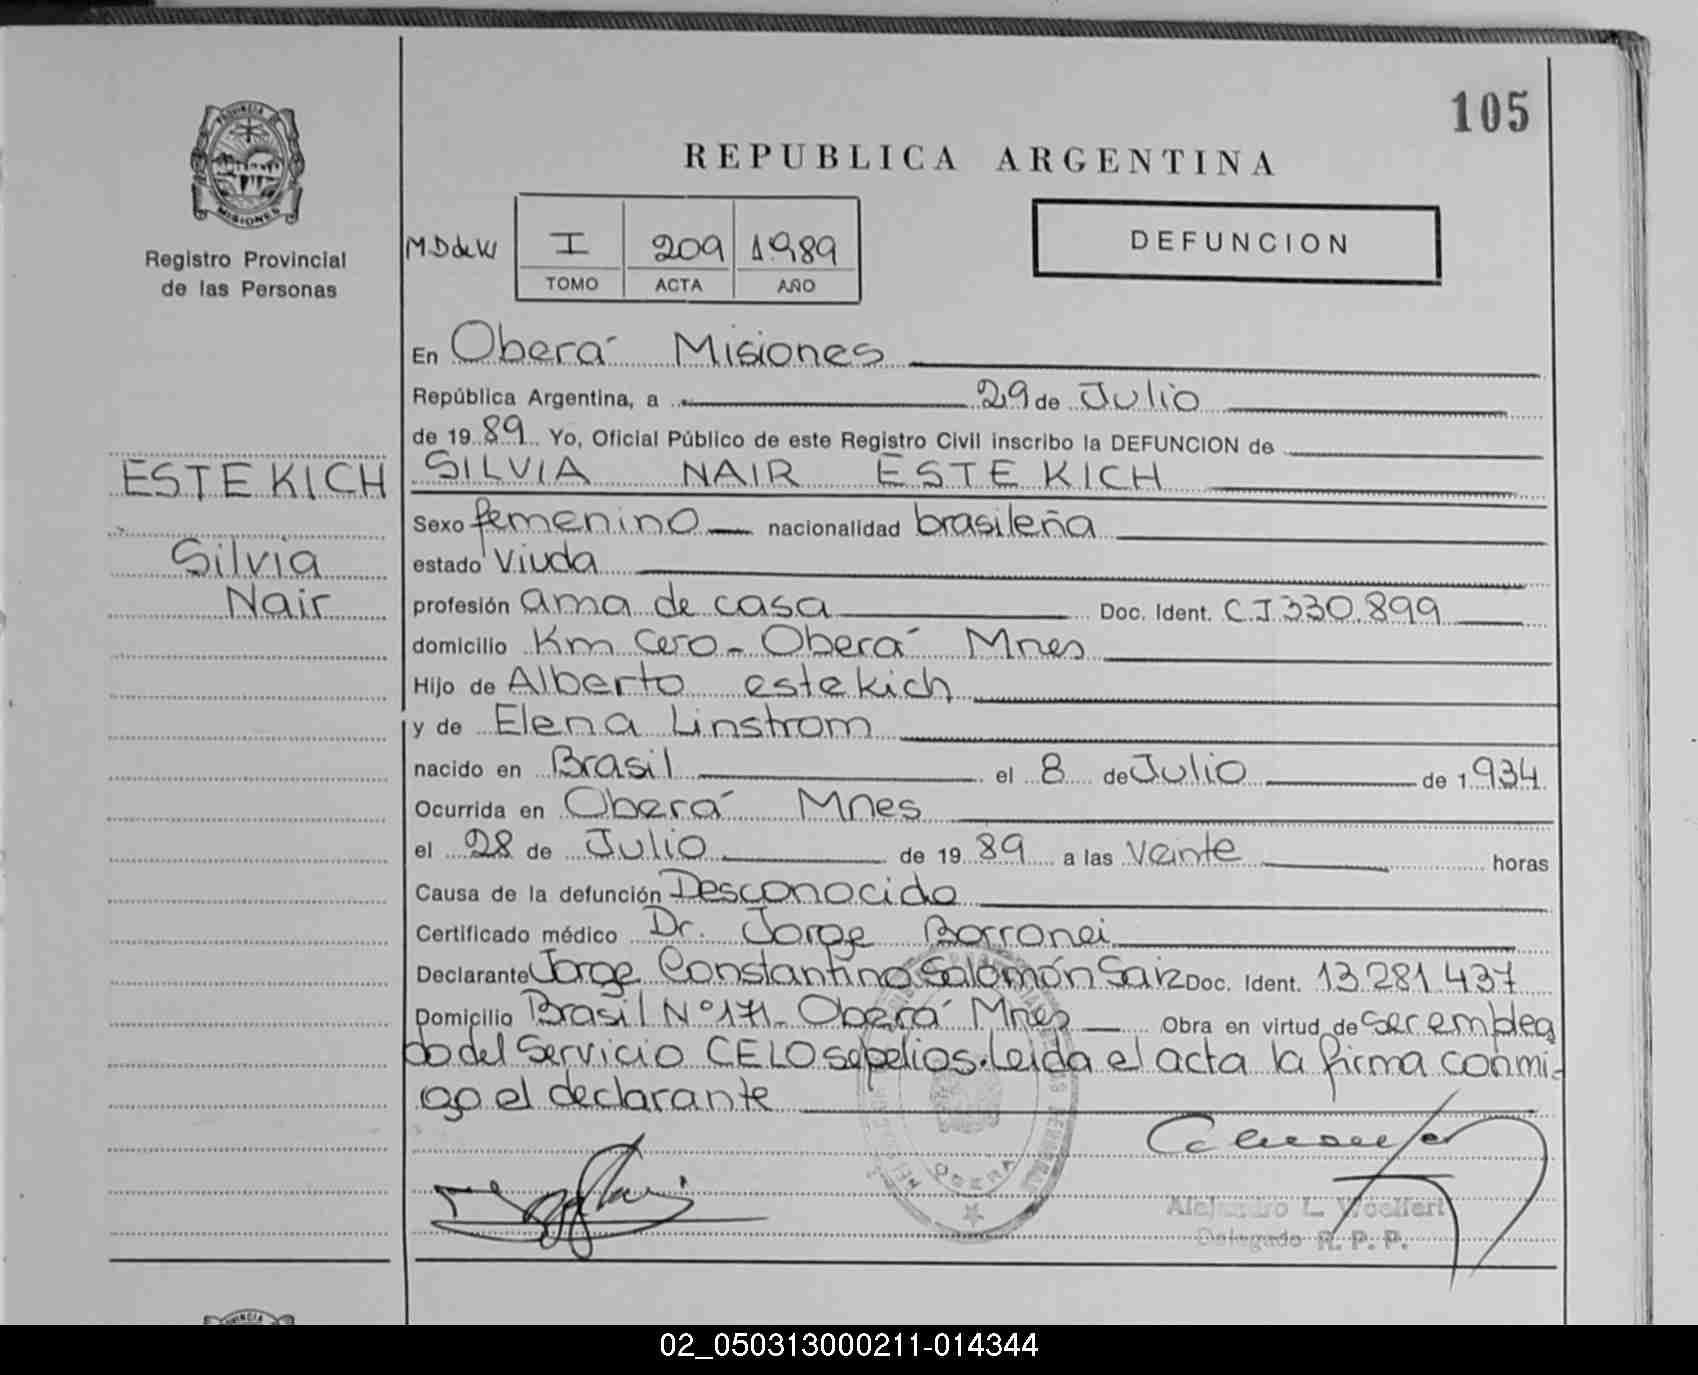 105
PROVINCIA
MISIONES
Registro Provincial
de las Personas
REPUBLICA ARGENTINA
I 209 1989
TOMO ACTA AÑO
DEFUNCION
En Oberá Misiones
República Argentina, a 29 de Julio
de 19 89 Yo, Oficial Público de este Registro Civil inscribo la DEFUNCION de
ESTEKICH
Silvia
Nair
SILVIA NAIR ESTEKICH
Sexo femenino nacionalidad brasileña
estado Viuda
profesión ama de casa Doc. Ident. C.I 330.899
domicilio Km cero - Oberá Mnes
Hijo de Alberto estekich
y de Elena Linstrom
nacido en Brasil el 8 de Julio de 1934
Ocurrida en Oberá Mnes
el 28 de Julio de 19 89 a las Veinte horas
Causa de la defunción Desconocido
Certificado médico Dr. Jorge Borronei
Declarante Jorge Constantino Salomón Saiz Doc. Ident. 13.281.437
Domicilio Brasil Nº 171 - Oberá Mnes Obra en virtud de ser emplea
do del Servicio CELO sepelios. Leida el acta la firma conmi-
go el declarante
OBERA
Alejandro L. Woelfert
Delegado R. P. P.
02_050313000211-014344